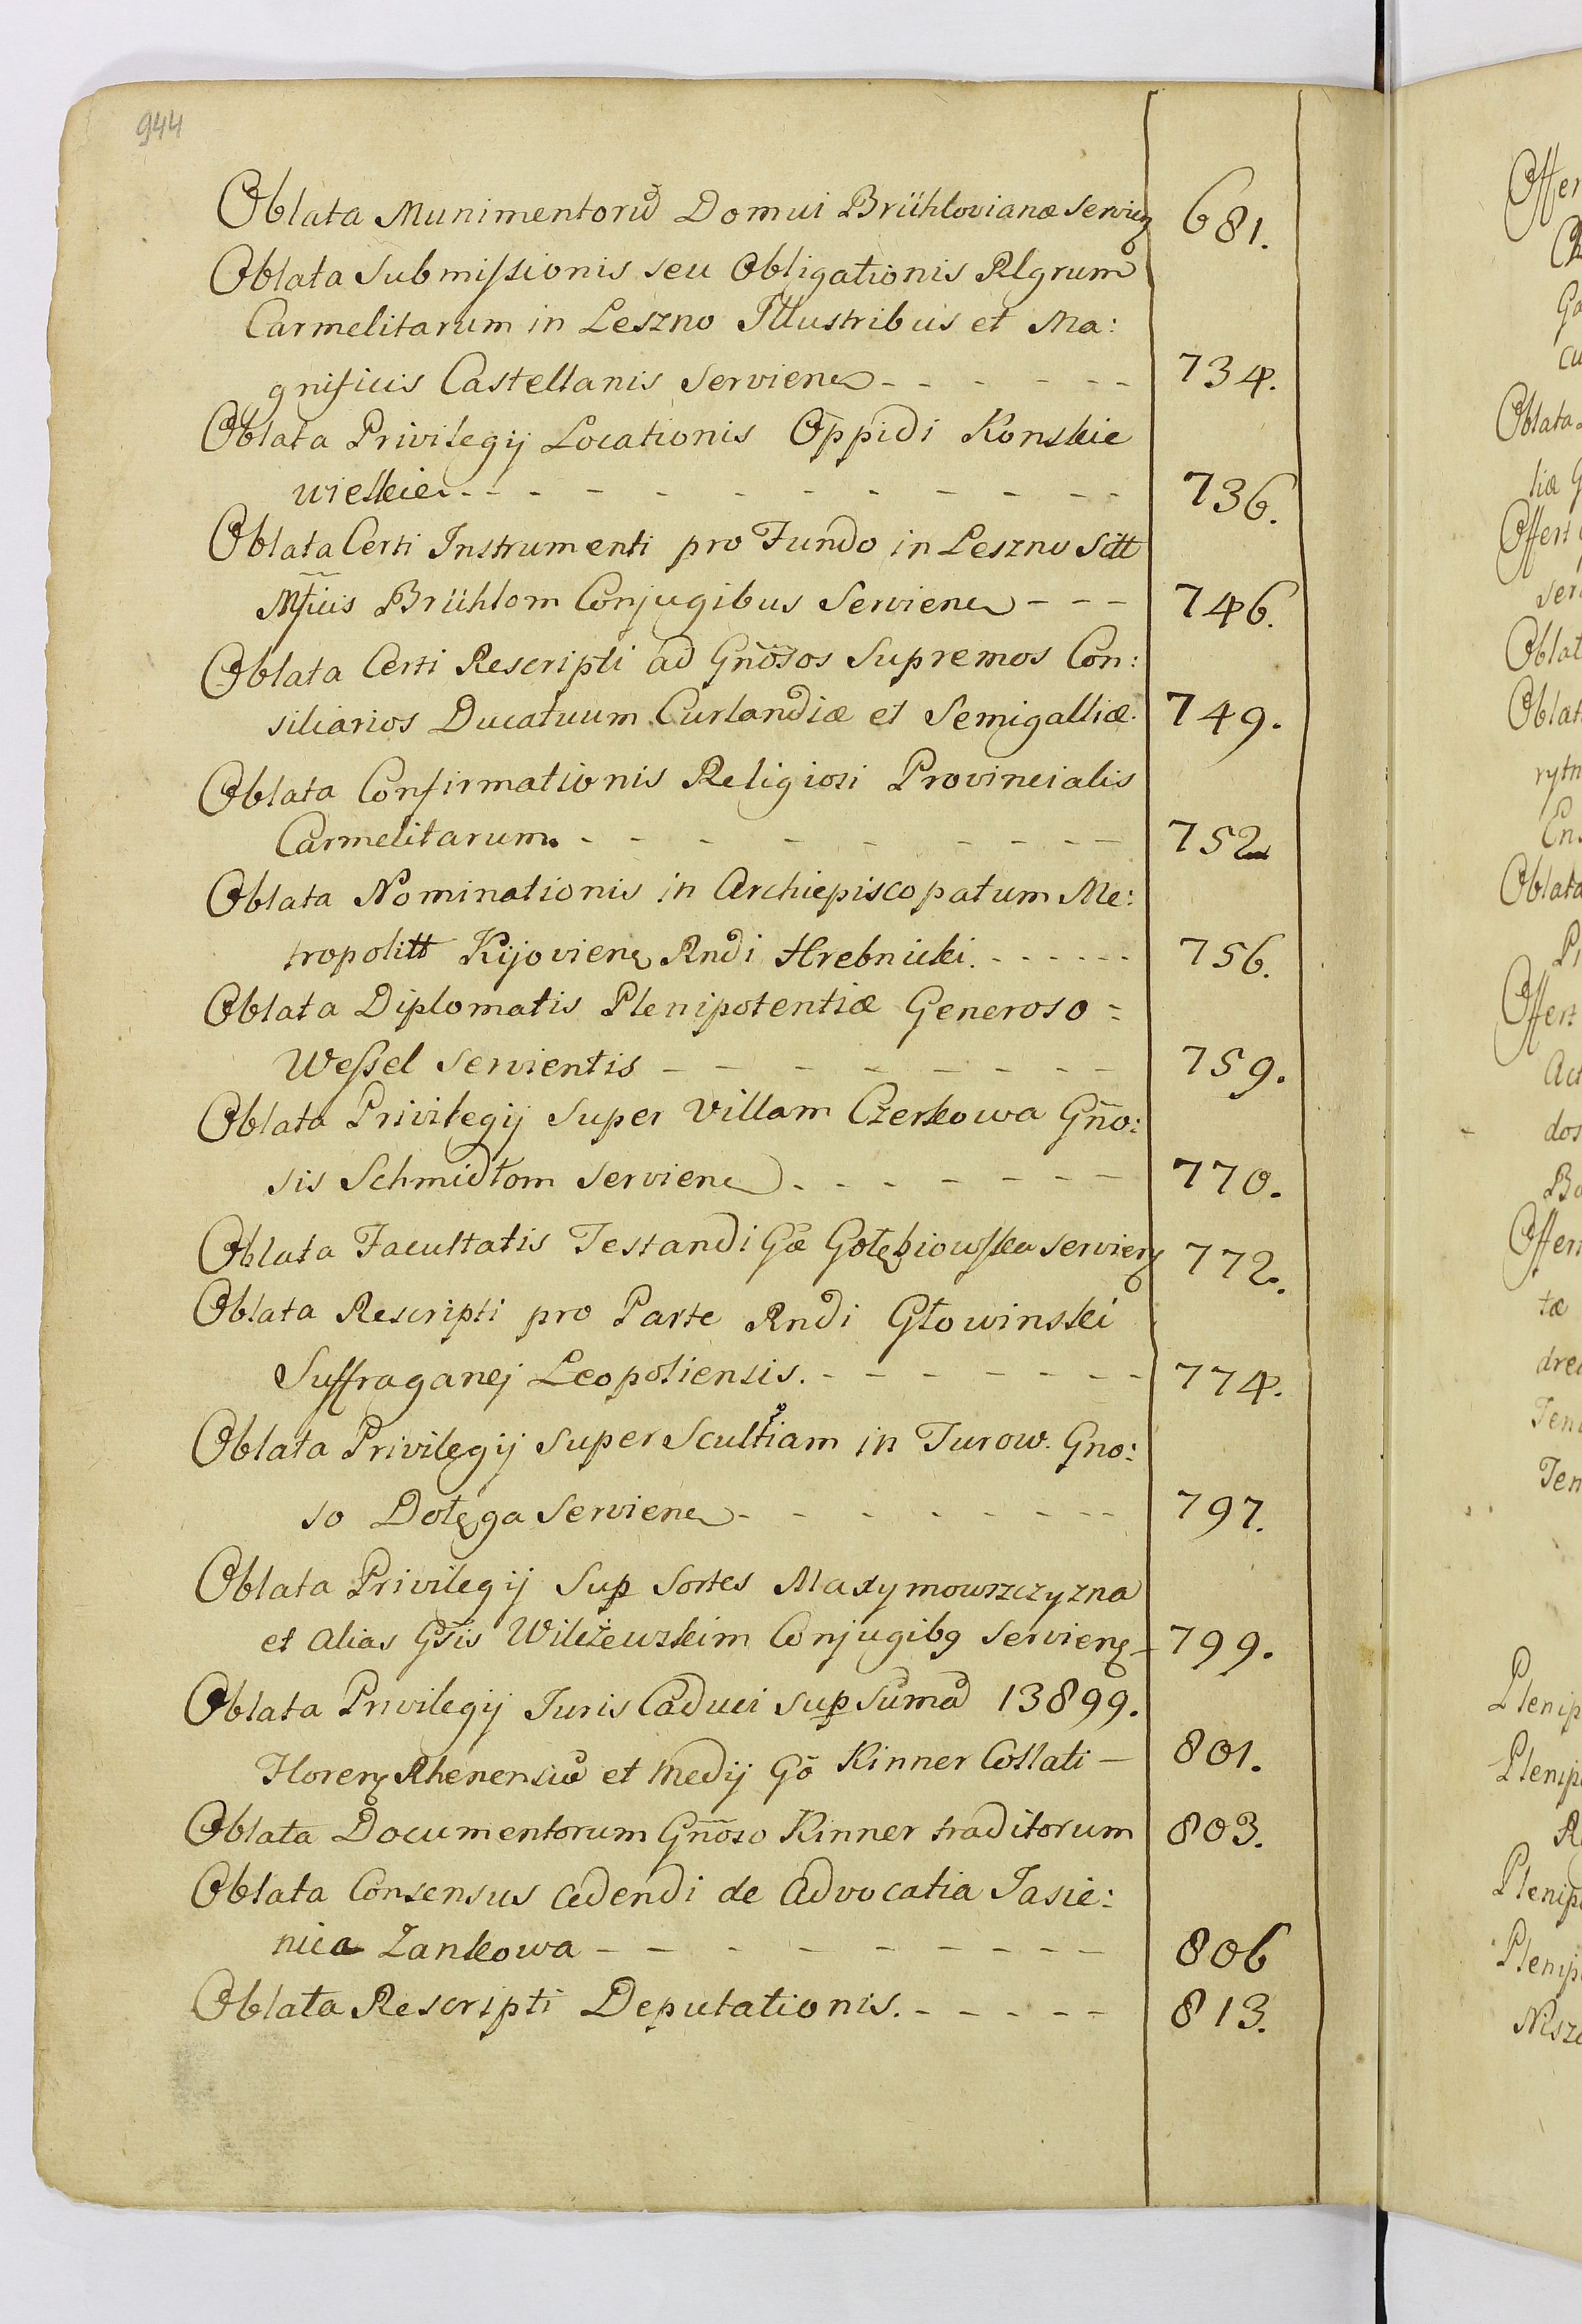 944
Oblata Munimentorum Domui Brühlovianæ Servien 681.
Oblata Submissionis seu Obligationis Rlgrum
Carmelitarum in Leszno Illustribus et Ma:
gnificis Castellanis Servien - - - - - - 734.
Oblata Privilegij Locationis Oppidi Konskie
wielkie - - - - - - - - - - - 736.
Oblata Certi Instrumenti pro Fundo in Leszno Sitt
Mficis Brühlom Conjugibus Servien - - - 746.
Oblata Certi Rescripti ad Gnosos Supremos Con:
siliarios Ducatuum Curlandiæ et Semigalliæ. 749.
Oblata Confirmationis Religiosi Provincialis
Carmelitarum. - - - - - - - - - 752
Oblata Nominationis in Archiepiscopatum Me:
tropolitt Kijovien Rndi Hrebnicki. - - - - - - 756.
Oblata Diplomatis Plenipotentiæ Generoso =
Wessel Servientis - - - - - - - - 759.
Oblata Privilegij Super Villam Czerkowa Gño:
sis Schmidtom Servien - - - - - - - 770.
Oblata Facultatis Testandi Gæ Gołębiowska Servien 772.
Oblata Rescripti pro Parte Rndi Głowinski
Suffraganej Leopoliensis. - - - - - - - - 774.
Oblata Privilegij Super Scultiam in Turow. Gno:
so Dołęga Servien - - - - - - - - 797.
Oblata Privilegij Sup Sortes Maxymowszczyzna
et alias Gsis Wilczewskim Conjugibg Servien - 799.
Oblata Privilegij Juris Caduci sup Sumã 13899.
Floren Rhenensiũ et medij Gõ Kinner Collati - 801.
Oblata Documentorum Gnoso Kinner traditorum 803.
Oblata Consensus cedendi de Advocatia Jasie:
nica Zankowa - - - - - - - - - 806
Oblata Rescripti Deputationis. - - - - - 813.